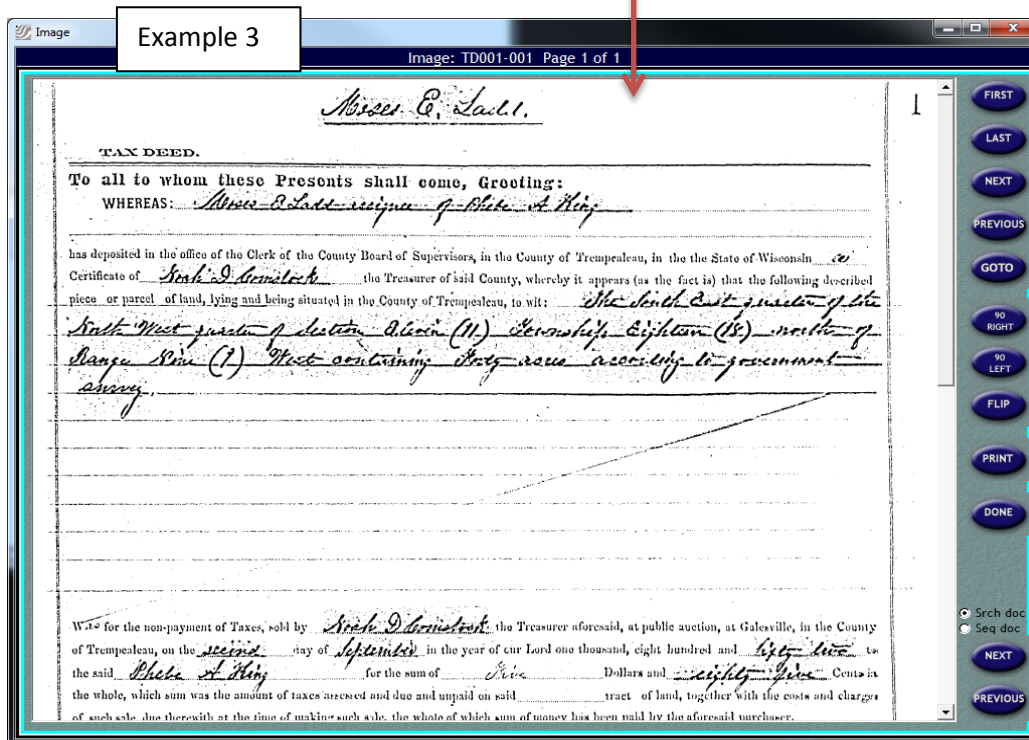 Image
Example 3
Image: TD001-001 Page 1 of 1
Moses E. Ladd.
1
TAX DEED.
To all to whom these Presents shall come, Greeting:
WHEREAS: Moses E Ladd assignee of Phebe A King
has deposited in the office of the Clerk of the County Board of Supervisors, in the County of Trempealeau, in the the State of Wisconsin a
Certificate of Noah D Comstock the Treasurer of said County, whereby it appears (as the fact is) that the following described
piece or parcel of land, lying and being situated in the County of Trempealeau, to wit: The South East quarter of the
North West quarter of Section Eleven (11) Township Eighteen (18) north of
Range Nine (9) West containing Forty acres according to government
survey.
Was for the non-payment of Taxes, sold by Noah D Comstock the Treasurer aforesaid, at public auction, at Galesville, in the County
of Trempealeau, on the second day of September in the year of our Lord one thousand, eight hundred and fifty to
the said Phebe A King for the sum of Five Dollars and eighty five Cents in
the whole, which sum was the amount of taxes assessed and due and unpaid on said tract of land, together with the costs and charges
of such sale, due therewith at the time of making such sale, the whole of which sum of money has been paid by the aforesaid purchaser.
FIRST
LAST
NEXT
PREVIOUS
GOTO
90 RIGHT
90 LEFT
FLIP
PRINT
DONE
Srch doc
Seq doc
NEXT
PREVIOUS